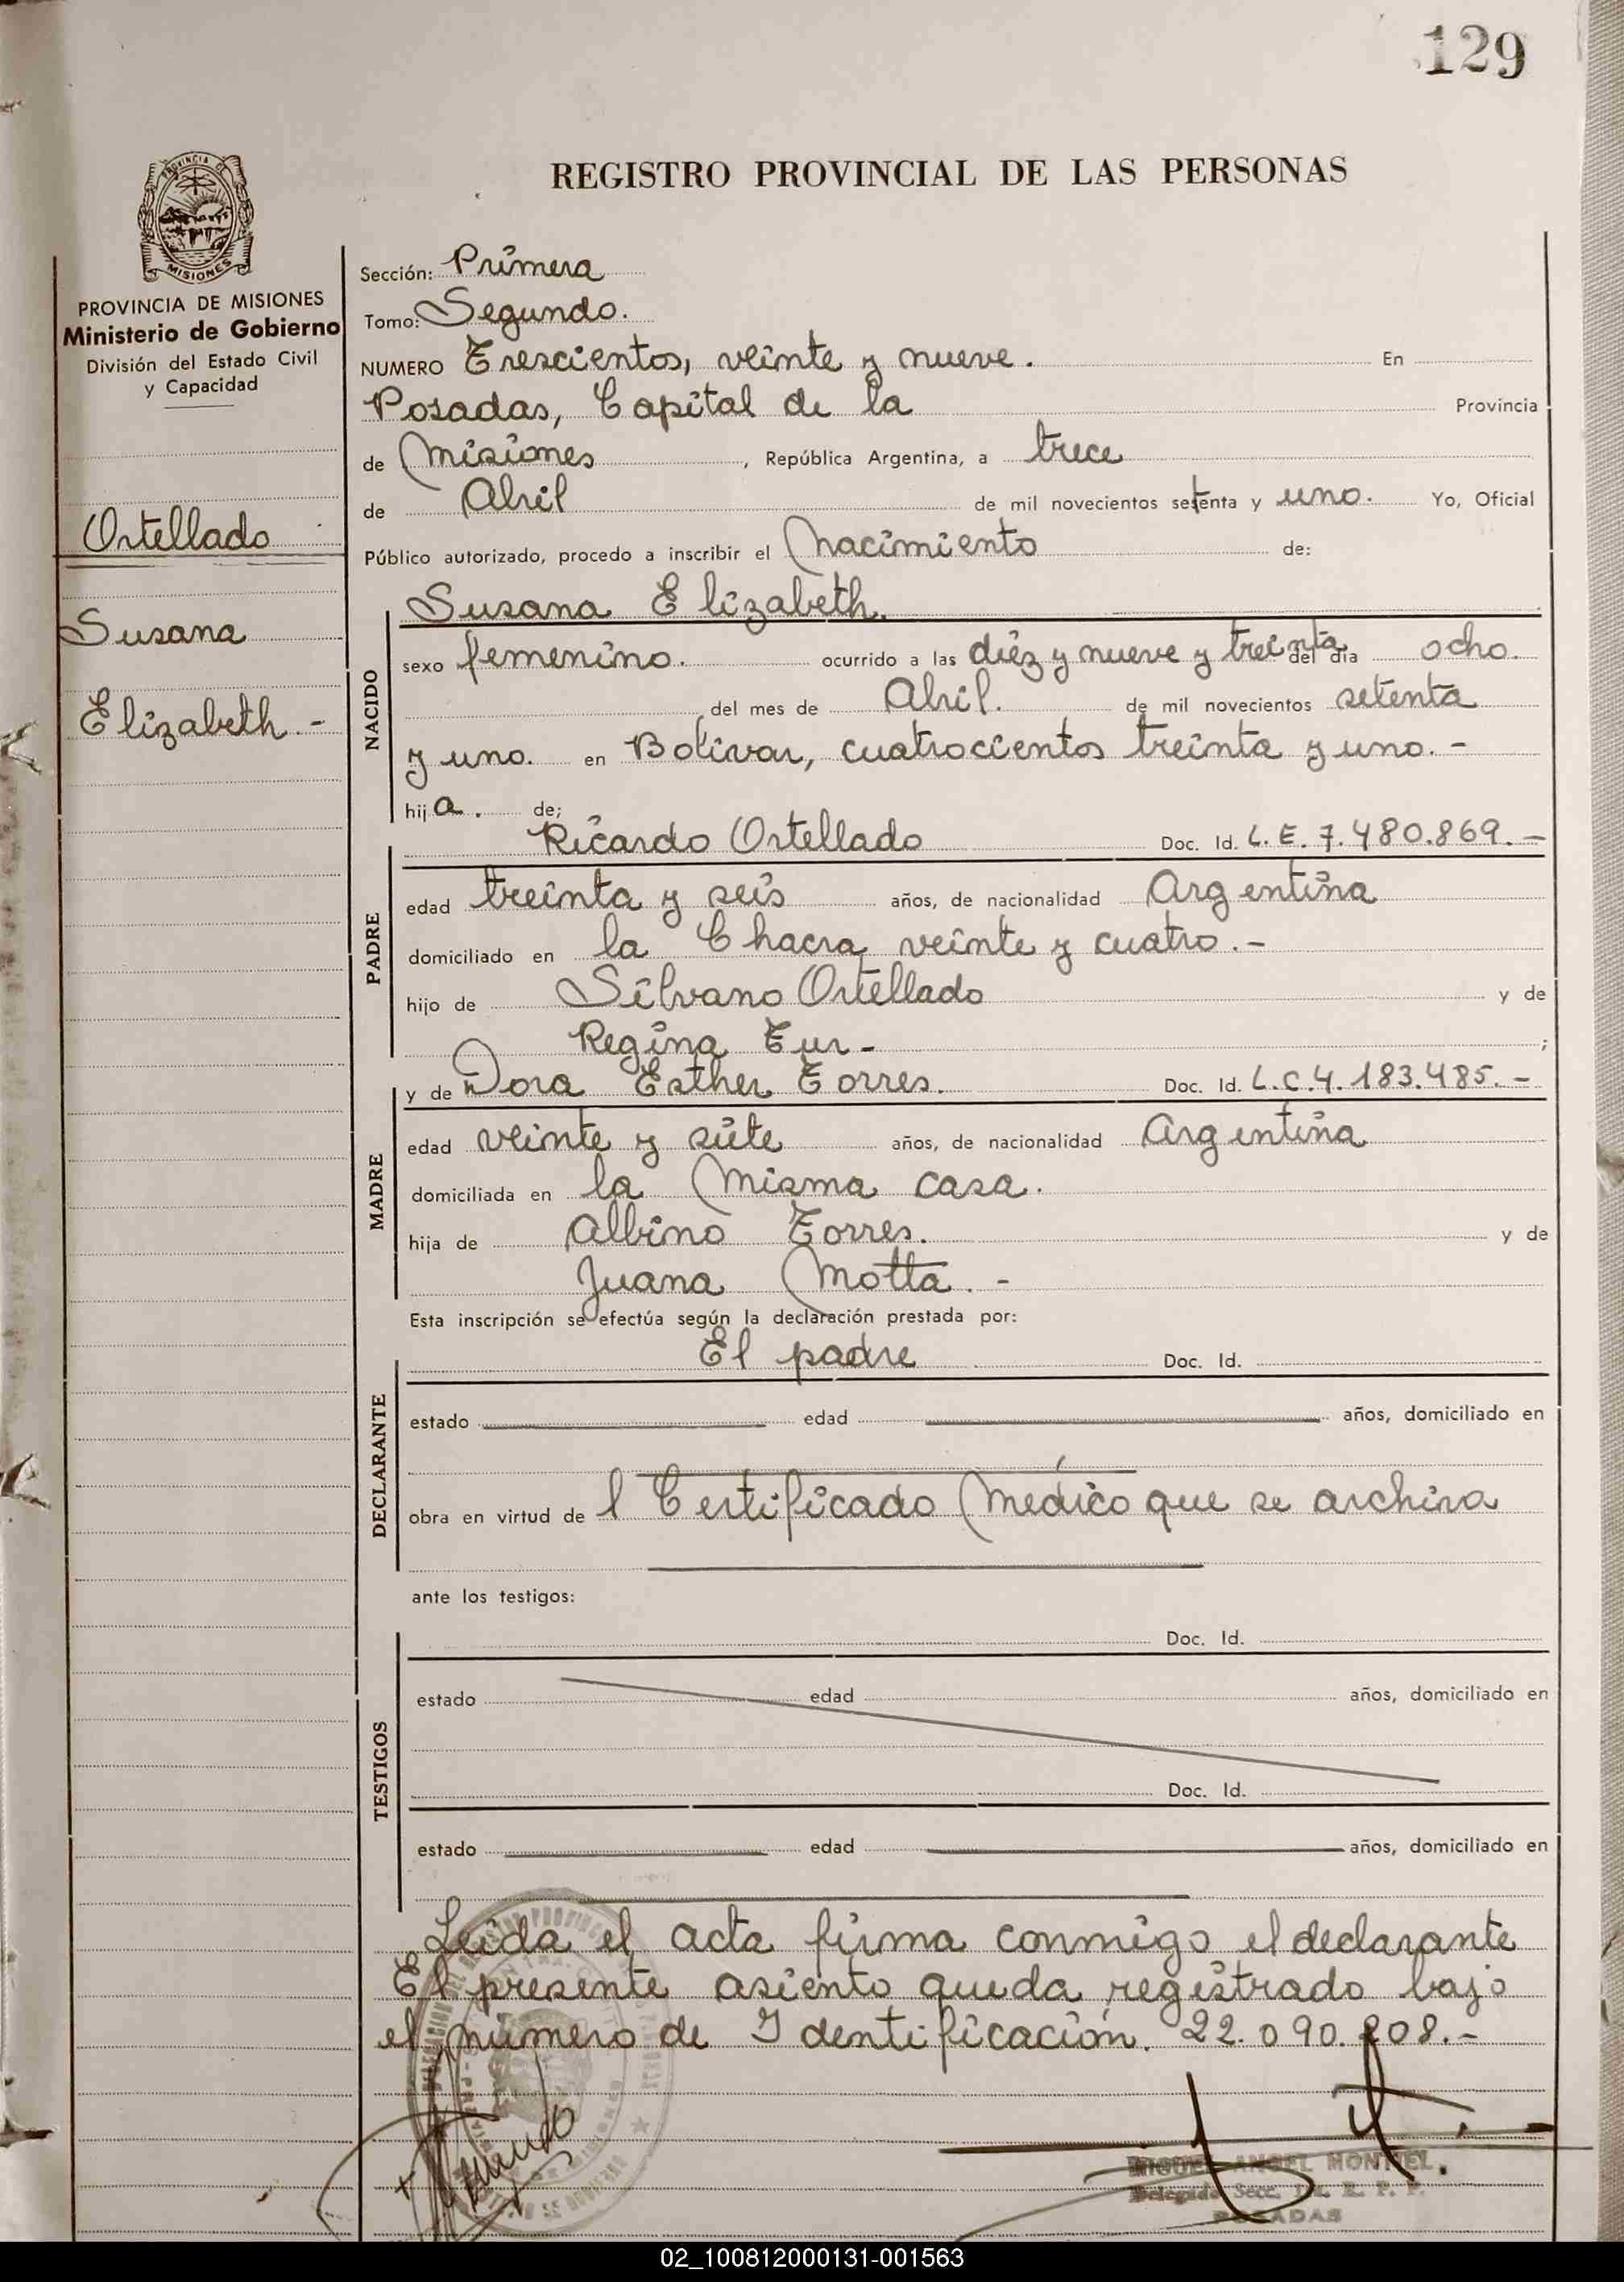 129
REGISTRO PROVINCIAL DE LAS PERSONAS
PROVINCIA DE
MISIONES
PROVINCIA DE MISIONES
Ministerio de Gobierno
División del Estado Civil
y Capacidad
Ortellado
Susana
Elizabeth.-
Sección: Primera
Tomo: Segundo.
NUMERO Trescientos, veinte y nueve. En
Posadas, Capital de la Provincia
de Misiones, República Argentina, a trece
de Abril de mil novecientos setenta y uno. Yo, Oficial
Público autorizado, procedo a inscribir el Nacimiento de:
Susana Elizabeth.
NACIDO
sexo femenino. ocurrido a las diéz y nueve y treinta del día ocho.
del mes de Abril. de mil novecientos setenta
y uno. en Bolívar, cuatrocientos treinta y uno.-
hija. de;
Ricardo Ortellado Doc. Id. L.E. 7.480.869.-
PADRE
edad treinta y seis años, de nacionalidad Argentina
domiciliado en la Chacra veinte y cuatro.-
hijo de Silvano Ortellado y de
Regina Eur-;
y de Dora Esther Torres. Doc. Id. L.C.4.183.485.-
MADRE
edad veinte y siete años, de nacionalidad Argentina
domiciliada en la Misma casa.
hija de Albino Torres. y de
Juana Motta.-
Esta inscripción se efectúa según la declaración prestada por:
El padre Doc. Id.
DECLARANTE
estado edad años, domiciliado en
obra en virtud del Certificado Médico que se archiva
ante los testigos:
Doc. Id.
TESTIGOS
estado edad años, domiciliado en
Doc. Id.
estado edad años, domiciliado en
Leida el acta firma conmigo el declarante
El presente asiento queda registrado bajo
el número de Identificación. 22.090.208.-
MIGUEL ANGEL MONTIEL.
Delegado Secc. 1a. R. P. P.
POSADAS
02_100812000131-001563